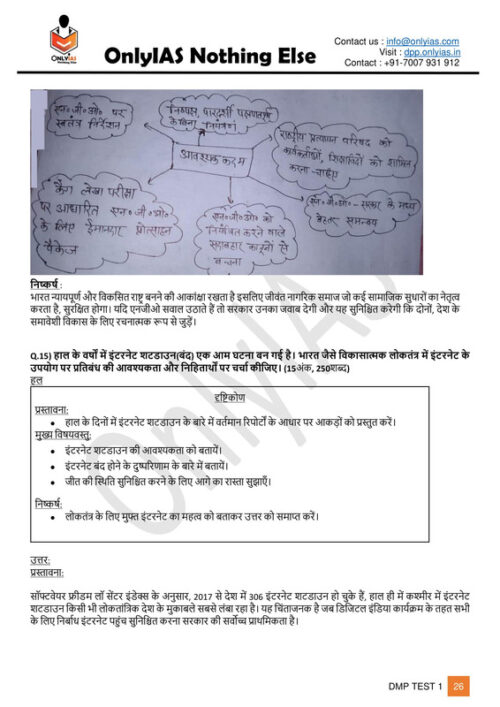 ONLYIAS
Nothing Else
OnlyIAS Nothing Else
Contact us : info@onlyias.com
Visit : dpp.onlyias.in
Contact : +91-7007 931 912
एन॰जी॰ओ॰ पर
स्वतंत्र निर्देशन
निष्पक्ष, पारदर्शी
के बिना नियंत्रण
राष्ट्रीय प्रत्यायन परिषद को
कार्यकर्ताओं, शिक्षाविदों को शामिल
करना चाहिए
आवश्यक कदम
कैग लेखा परीक्षा
पर आधारित एन॰जी॰ओ॰
के लिए ईमानदार प्रोत्साहन
पैकेज
एन॰जी॰ओ॰ को
नियंत्रित करने वाले
सदाबहार कानूनों से
बचना
एन॰जी॰ओ॰ - सरकार के मध्य
बेहतर समन्वय
निष्कर्ष :
भारत न्यायपूर्ण और विकसित राष्ट्र बनने की आकांक्षा रखता है इसलिए जीवंत नागरिक समाज जो कई सामाजिक सुधारों का नेतृत्व
करता है, सुरक्षित होगा। यदि एनजीओ सवाल उठाते हैं तो सरकार उनका जवाब देगी और यह सुनिश्चित करेगी कि दोनों, देश के
समावेशी विकास के लिए रचनात्मक रूप से जुड़ें।
Q.15) हाल के वर्षों में इंटरनेट शटडाउन(बंद) एक आम घटना बन गई है। भारत जैसे विकासात्मक लोकतंत्र में इंटरनेट के
उपयोग पर प्रतिबंध की आवश्यकता और निहितार्थों पर चर्चा कीजिए। (15अंक, 250शब्द)
हल
दृष्टिकोण
प्रस्तावना:
• हाल के दिनों में इंटरनेट शटडाउन के बारे में वर्तमान रिपोर्टों के आधार पर आकड़ों को प्रस्तुत करें।
मुख्य विषयवस्तु:
• इंटरनेट शटडाउन की आवश्यकता को बतायें।
• इंटरनेट बंद होने के दुष्परिणाम के बारे में बतायें।
• जीत की स्थिति सुनिश्चित करने के लिए आगे का रास्ता सुझाएँ।
निष्कर्ष:
• लोकतंत्र के लिए मुफ्त इंटरनेट का महत्व को बताकर उत्तर को समाप्त करें।
OnlyIAS
उत्तर:
प्रस्तावना:
सॉफ्टवेयर फ्रीडम लॉ सेंटर इंडेक्स के अनुसार, 2017 से देश में 306 इंटरनेट शटडाउन हो चुके हैं, हाल ही में कश्मीर में इंटरनेट
शटडाउन किसी भी लोकतांत्रिक देश के मुकाबले सबसे लंबा रहा है। यह चिंताजनक है जब डिजिटल इंडिया कार्यक्रम के तहत सभी
के लिए निर्बाध इंटरनेट पहुंच सुनिश्चित करना सरकार की सर्वोच्च प्राथमिकता है।
DMP TEST 1 26